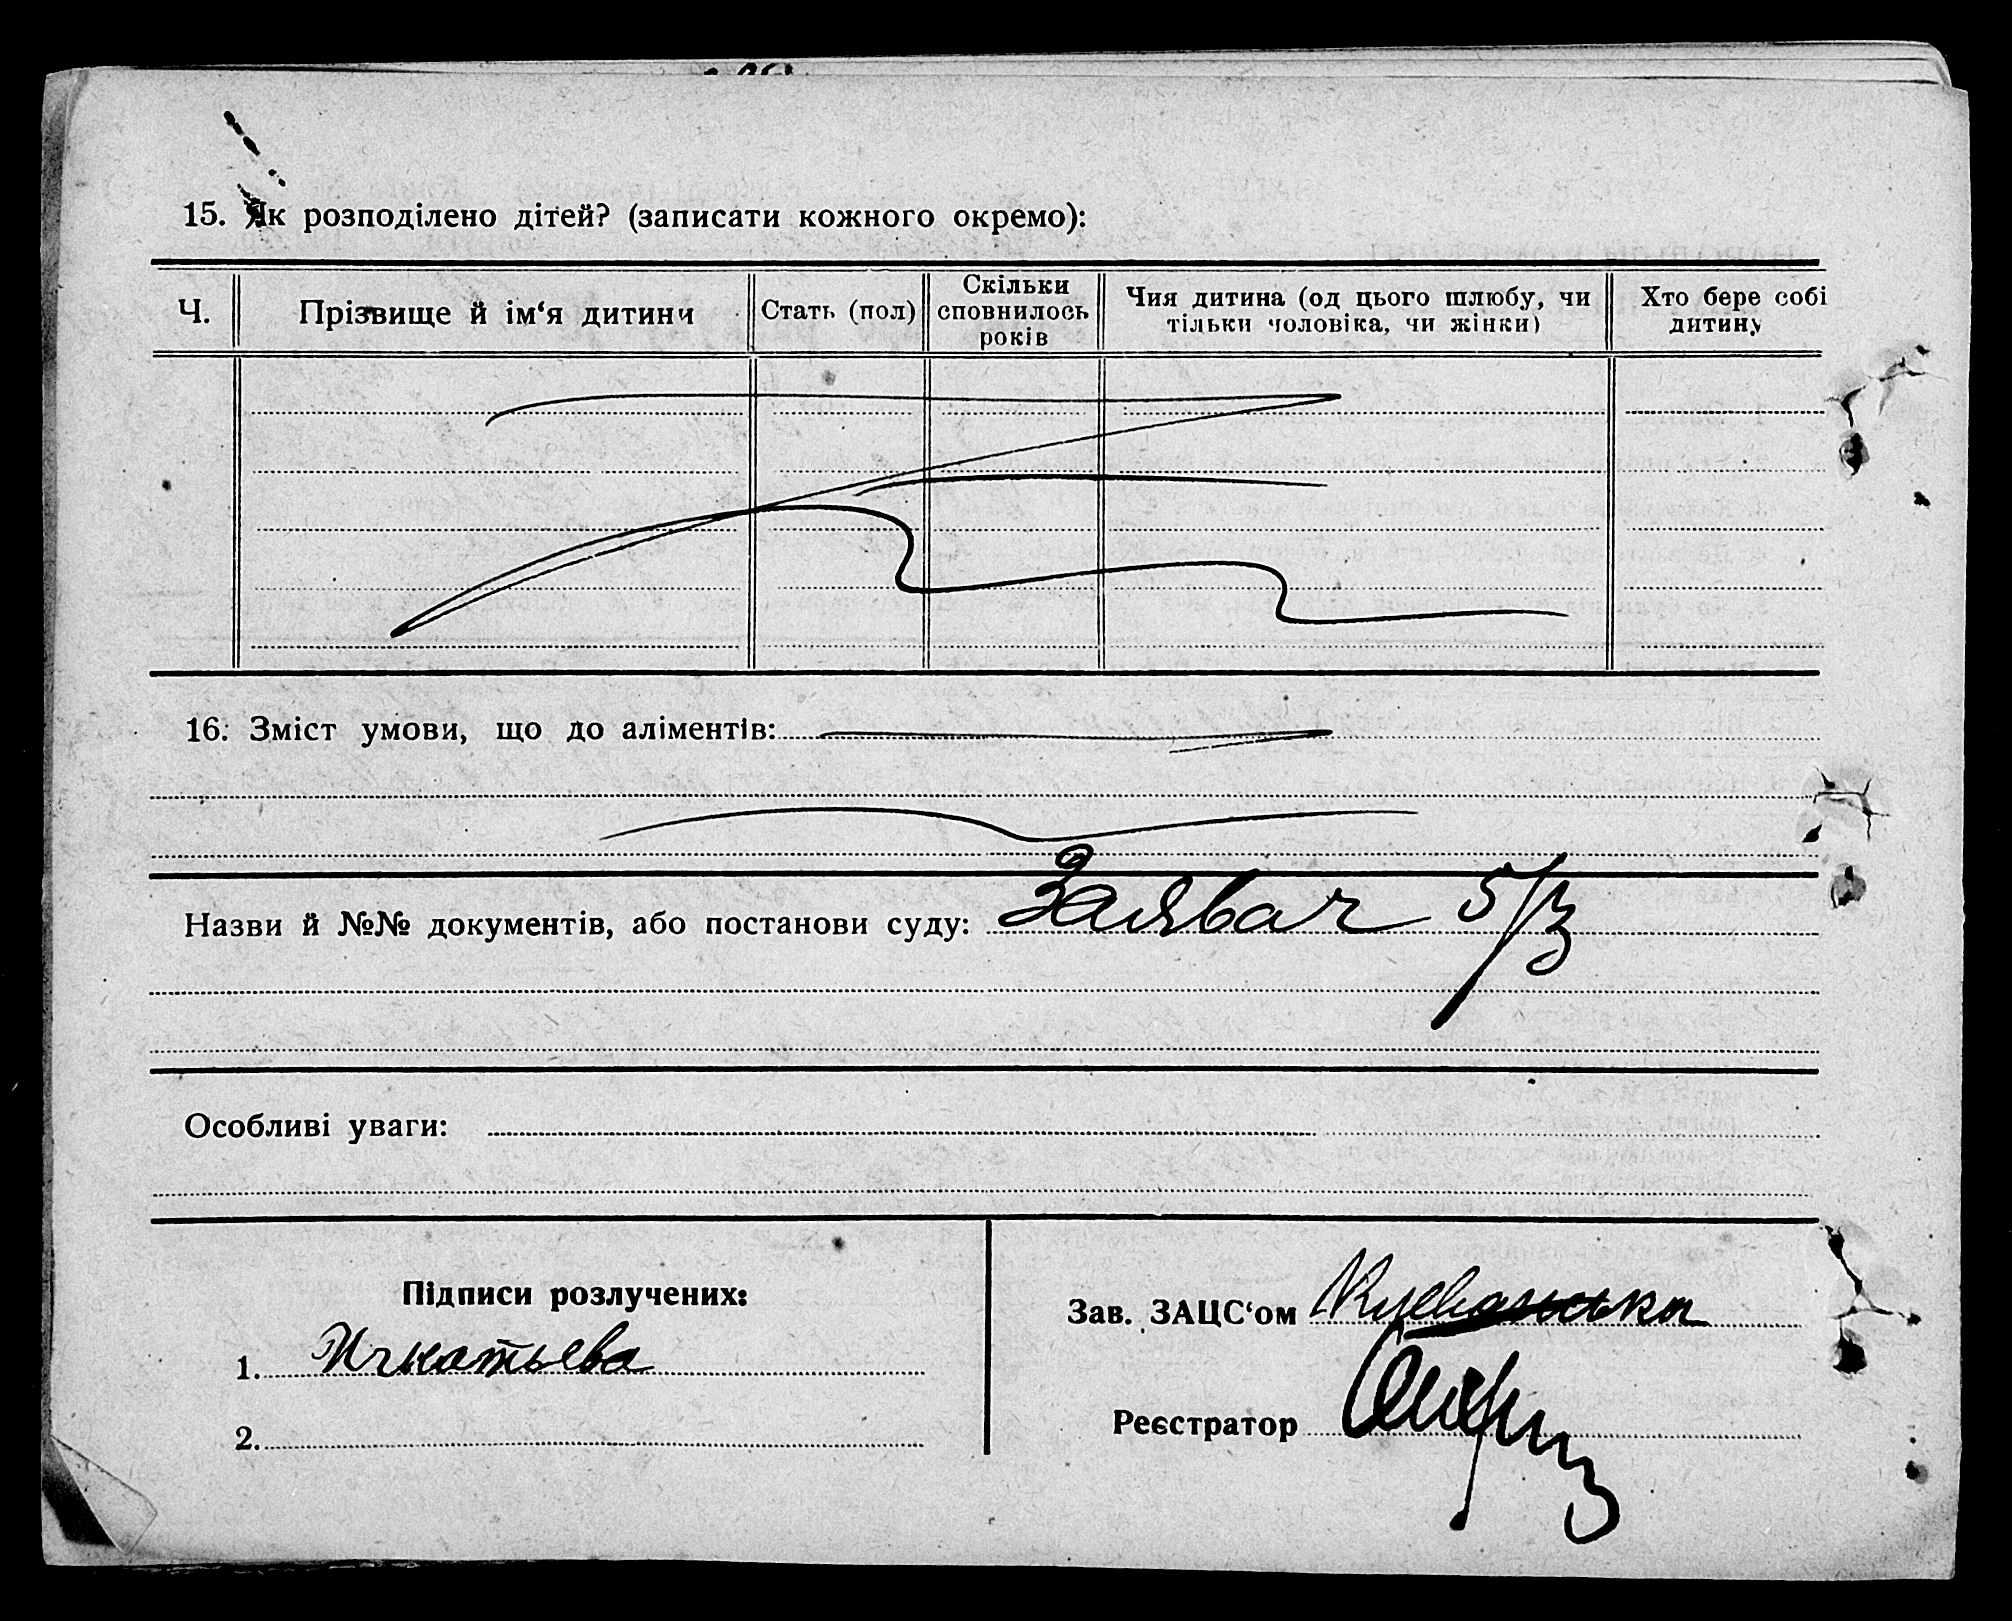 15. Як розподілено дітей? (записати кожного окремо):
Ч.
Прізвище й ім‘я дитини
Стать (пол)
Скільки
сповнилось
років
Чия дитина (од цього шлюбу, чи
тільки чоловіка, чи жінки)
Хто бере собі
дитину
16. Зміст умови, що до аліментів:
Назви й №№ документів, або постанови суду: Заява ч 5/3
Особливі уваги:
Підписи розлучених:
1. Игнатьева
2.
Зав. ЗАЦС‘ом
Реєстратор